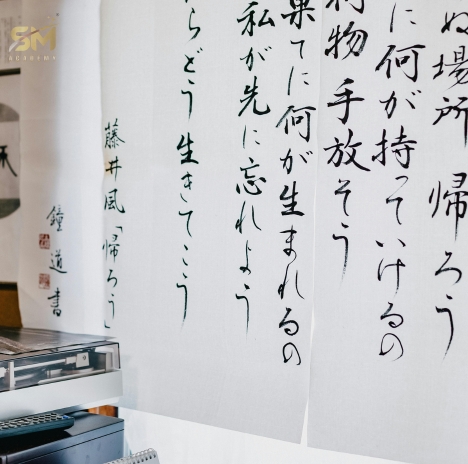 ぬ場所 帰ろう
に何が持っていけるの
物 手放そう
果てに何が生まれるの
私が先に忘れよう
らどう生きてこう
藤井風「帰ろう」
鐘道書